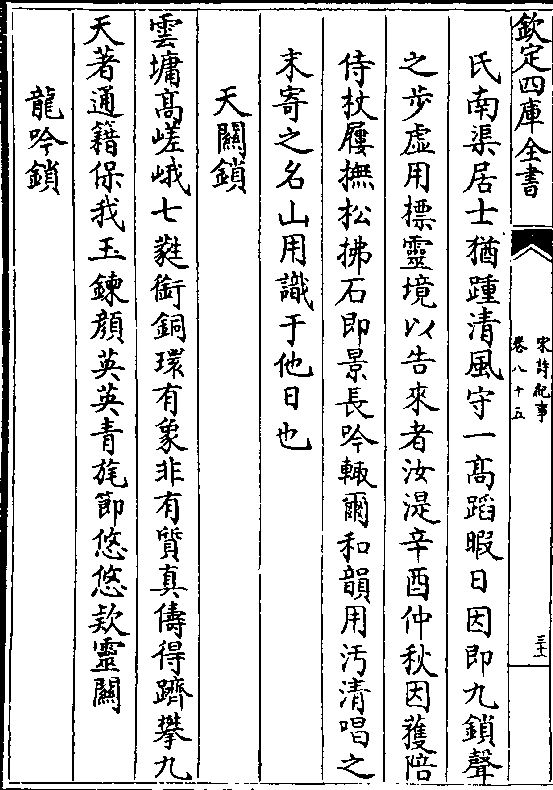 欽定四庫全書
宋詩紀事
卷八十五
三十
氏南渠居士猶踵清風守一高蹈暇日因即九鎖聲
之步虛用標靈境以告來者汝湜辛酉仲秋因獲陪
侍杖屨撫松拂石即景長吟輙爾和韻用汚清唱之
末寄之名山用識于他日也
天關鎖
雲墉高嵯峨七蕤銜銅環有象非有質真儔得躋攀九
天著通籍保我玉鍊顔英英青旄節悠悠欵靈關
龍吟鎖